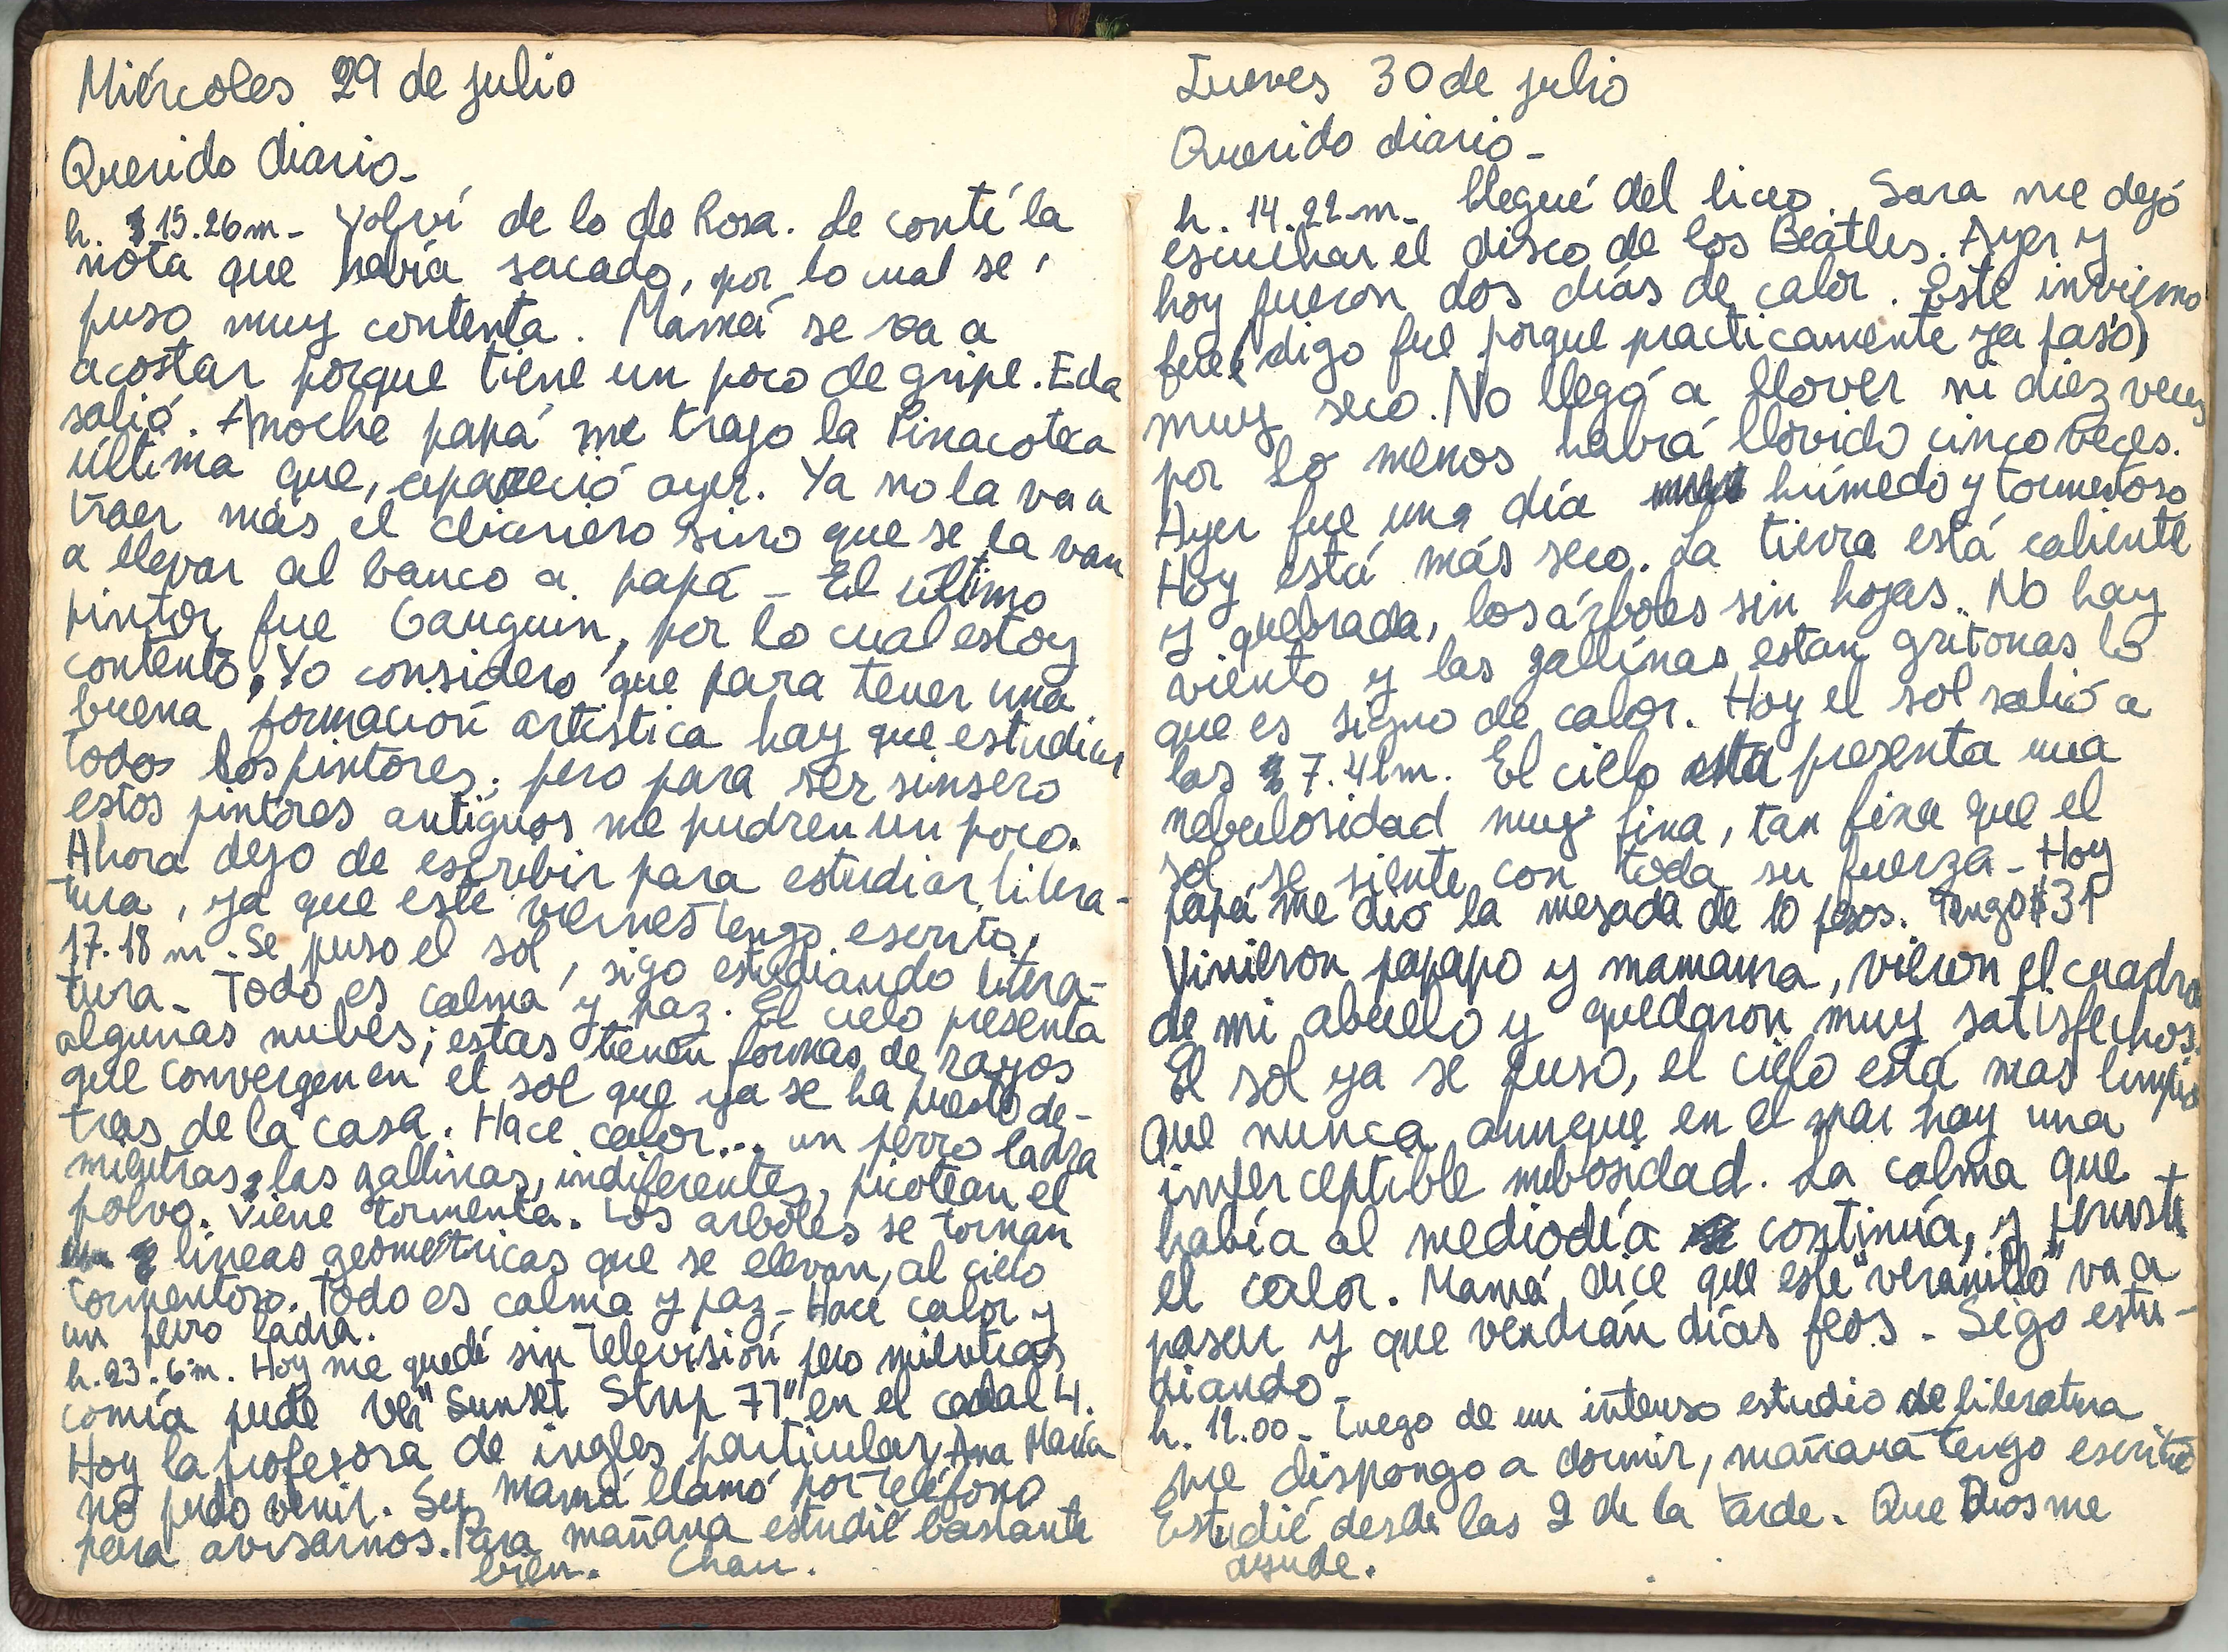 Miércoles 29 de julio
Querido diario_
h. 15.26m_ Volví de lo de Rosa. Le conté la
nota que había sacado, por lo cual se
puso muy contenta. Mamá se va a
acostar porque tiene un poco de gripe. Eda
salió. Anoche papá me trajo la Pinacoteca
última que, apareció ayer. Ya no la va a
traer más el diariero sino que se la van
a llevar al banco a papá _ El último
pintor fue Gauguin, por lo cual estoy
contento, Yo considero que para tener una
buena formación artística hay que estudiar
todos los pintores; pero para ser sinsero
estos pintores antiguos me pudren un poco.
Ahora dejo de escribir para estudiar litera-
tura, ya que este viernes tengo escrito.
17.18 m. Se puso el sol, sigo estudiando litera-
tura_ Todo es calma y paz. El cielo presenta
algunas nubes; estas tienen formas de rayos
que convergen en el sol que ya se ha puesto de-
tras de la casa. Hace calor... un perro ladra
mientras las gallinas, indiferentes, picotean el
polvo. Viene tormenta. Los arboles se tornan
lineas geométricas que se elevan, al cielo
tormentoso. Todo es calma y paz_ Hace calor y
un perro ladra.
h. 23.6m. Hoy me quedé sin televisión pero mientras
comía pude ver "Sunset Strip 77" en el canal 4.
Hoy la profesora de ingles particular, Ana María
no pudo venir. Su mamá llamó por teléfono
para avisarnos. Para mañana estudié bastante
bien. Chau.
Jueves 30 de julio
Querido diario_
h. 14.22m_ llegué del liceo. Sara me dejó
escuchar el disco de los Beatles. Ayer y
hoy fueron dos días de calor. Este invierno
fue (digo fue porque practicamente ya pasó)
muy seco. No llegó a llover ni diez veces
por lo menos habrá llovido cinco veces.
Ayer fue una día húmedo y tormentoso
Hoy está más seco. La tierra está caliente
y quebrada, los árboles sin hojas. No hay
viento y las gallinas estan gritonas lo
que es signo de calor. Hoy el sol salió a
las 7.41m. El cielo presenta una
nebulosidad muy fina, tan fina que el
sol se siente con toda su fuerza_ Hoy
papá me dió la mesada de 10 pesos. Tengo $31
Vinieron papapo y mamama, vieron el cuadro
de mi abuelo y quedaron muy satisfechos.
El sol ya se puso, el cielo está mas limpio
que nunca aunque en el mar hay una
imperceptible nubosidad. La calma que
había al mediodía continúa, y persiste
el calor. Mamá dice que este "veranillo" va a
pasar y que vendrán días feos_ Sigo estu-
diando_
h. 12.00_ Luego de un intenso estudio de literatura
me dispongo a dormir, mañana tengo escrito
Estudié desde las 2 de la tarde. Que Dios me
ayude.